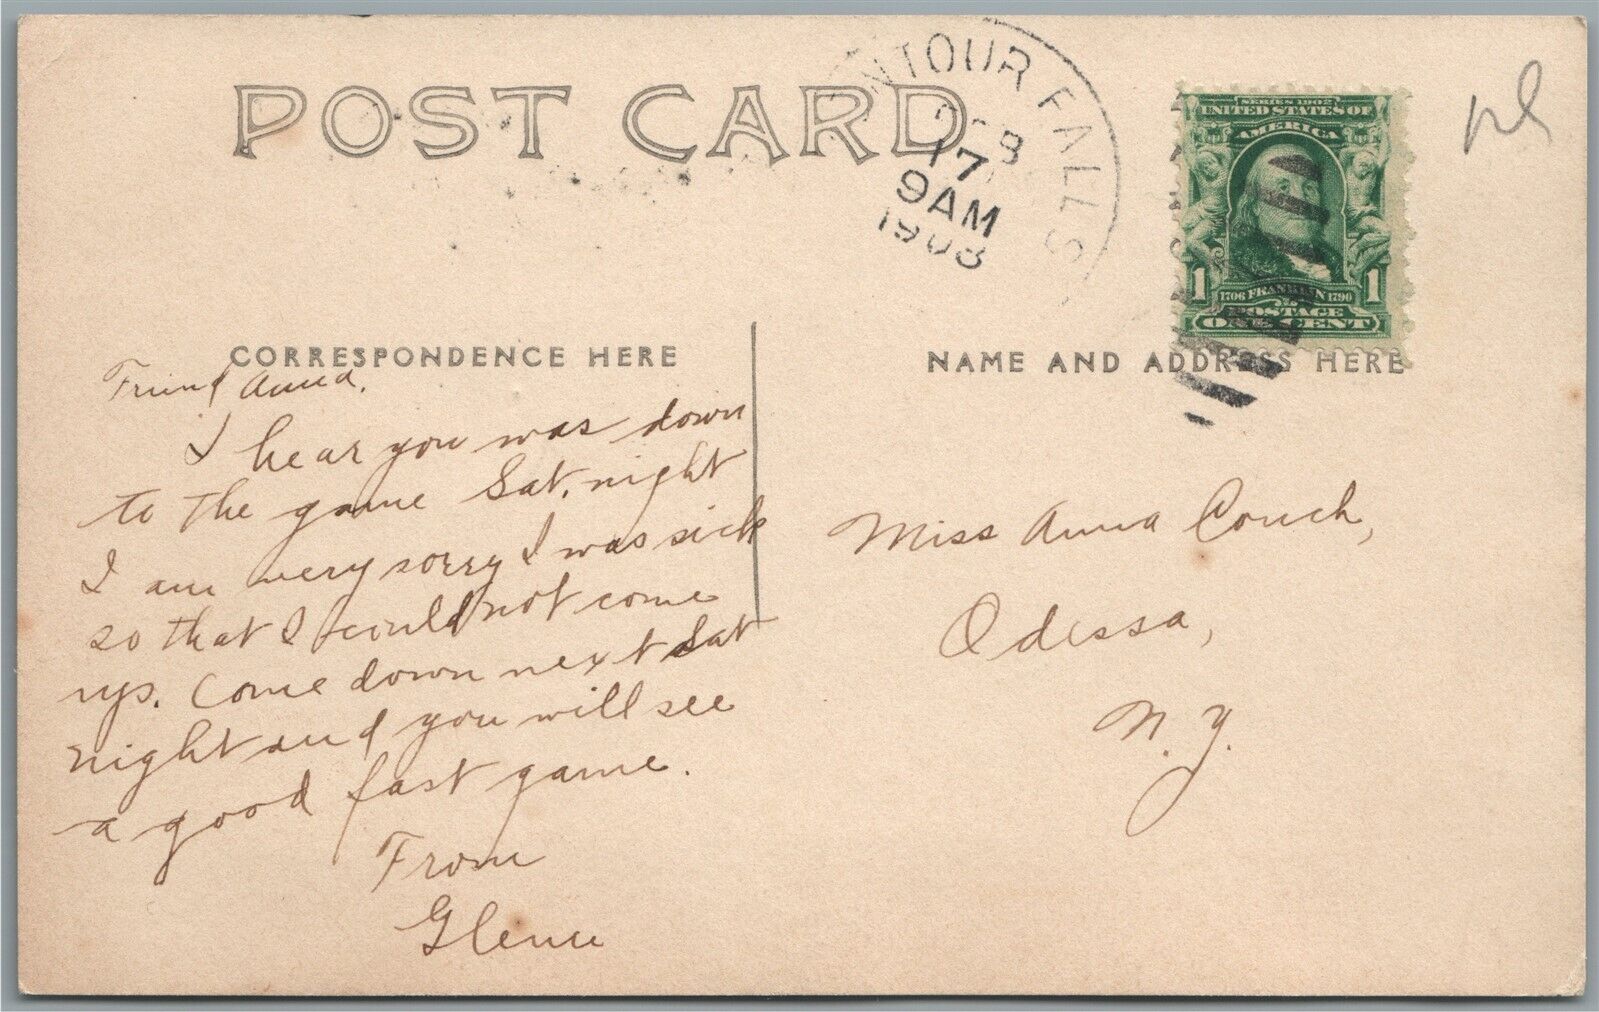 POST CARD
NTOUR FALLS
17
9AM
1908
SERIES 1902
UNITED STATES OF
AMERICA
1 1706 FRANKLIN 1790 1
POSTAGE
ONE CENT
CORRESPONDENCE HERE
NAME AND ADDRESS HERE
Friend Anna.
I hear you was down
to the game Sat. night
I am very sorry I was sick
so that I could not come
up. Come down next Sat
night and you will see
a good fast game.
From
Glenn
Miss Anna Couch,
Odessa,
N.Y.